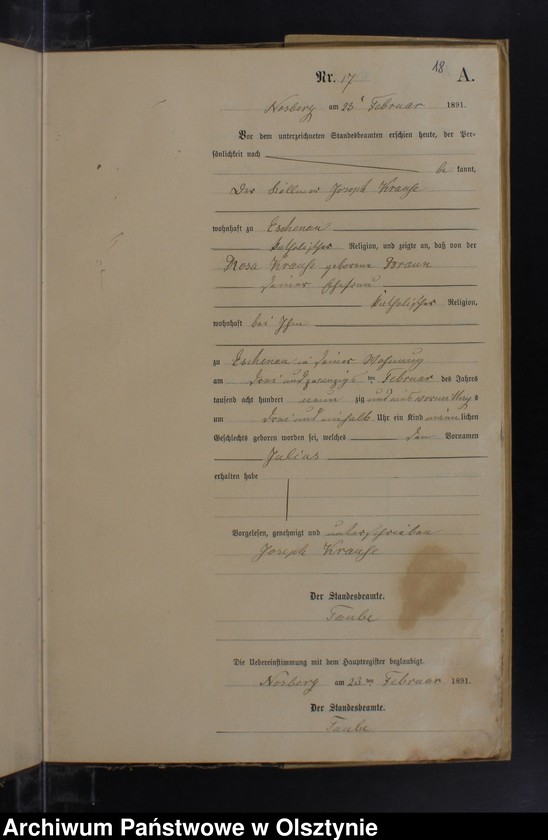 18
Nr. 17 A.
Nosberg am 23t Februar 1891.
Vor dem unterzeichneten Standesbeamten erschien heute, der Per-
sönlichkeit nach
be kannt,
Der Köllmer Joseph Krause
wohnhaft zu Eschenau
katholischer Religion, und zeigte an, daß von der
Rosa Krause geborene Braun
seiner Ehefrau
katholischer Religion,
wohnhaft bei Ihm
zu Eschenau in seiner Wohnung
am drei und zwanzigsten Februar des Jahres
tausend acht hundert neun zig und eins vormittag s
um drei und einhalb Uhr ein Kind männlichen
Geschlechts geboren worden sei, welches den Vornamen
Julius
erhalten habe
Vorgelesen, genehmigt und unterschrieben
Joseph Krause
Der Standesbeamte.
Taube
Die Uebereinstimmung mit dem Hauptregister beglaubigt.
Nosberg am 23ten Februar 1891.
Der Standesbeamte.
Taube
Archiwum Państwowe w Olsztynie